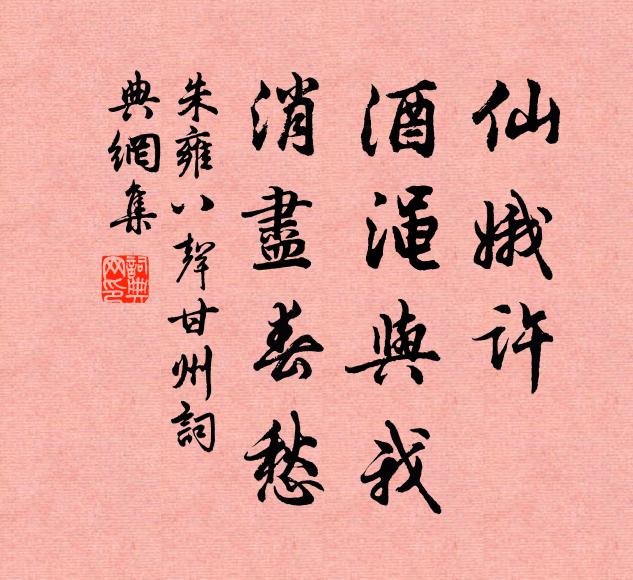 仙娥许
酒渑與我
消盡春愁
朱雍八聲甘州詞
典網集
詞典網印